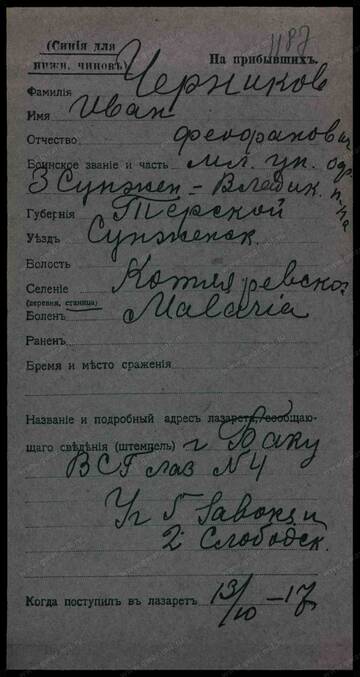 1187
(Синія для нижн. чиновъ)
На прибывшихъ.
Фамилія Черников
Имя Иван
Отчество Феофанович
Воинское званіе и часть мл. ун.
3 Сунжен – Владик.
Губернія Терской
Уѣздъ Сунженск.
Волость
Селеніе
(деревня, станица)
Боленъ Malaria
Раненъ
Время и мѣсто сраженія
Названіе и подробный адресъ лазарета, сообщаю-
щаго свѣдѣнія (штемпель) г Баку
ВСГ лаз N4
Уг 5
2 Слободск.
Когда поступилъ въ лазаретъ 13/10 – 17